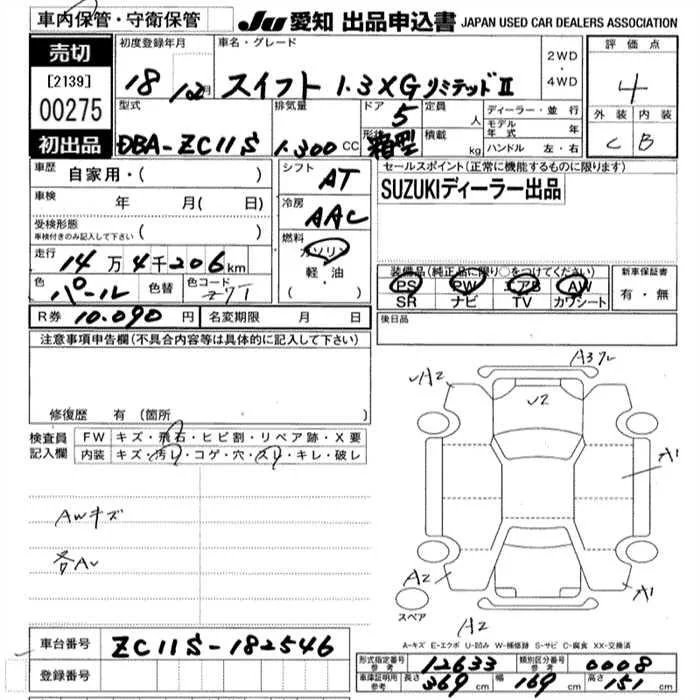 車内保管・守衛保管
JU 愛知 出品申込書 JAPAN USED CAR DEALERS ASSOCIATION
売切
[2139]
00275
初出品
初度登録年月
18 12月
車名・グレード
スイフト 1.3XGリミテッドⅡ
2WD
・
4WD
評価点
4
外装 内装
C B
型式
DBA-ZC11S
排気量
1.300 CC
ドア
5
形状
箱型
定員
人
積載
kg
ディーラー・並行
モデル
年式 年
ハンドル 左・右
車歴
自家用・( )
車検
年 月( 日)
受検形態
車検付きのみ記入して下さい ( )
走行
14万4千206km
色
パール
色替
色コード
Z7T
シフト
AT
冷房
AAC
燃料
ガソリン
軽・油
( )
セールスポイント(正常に機能するものに限ります)
SUZUKIディーラー出品
装備品(純正品に限り○をつけてください)
PS PW エアB AW
SR ナビ TV カワシート
新車保証書
有・無
R券 10.090 円 名変期限 月 日
後日品
注意事項申告欄(不具合内容等は具体的に記入して下さい)
修復歴 有(箇所
検査員
記入欄
FW キズ・飛石・ヒビ割・リペア跡・X要
内装 キズ・汚レ・コゲ・穴・スレ・キレ・破レ
AWキズ
各A
A2
A3
2
A1
A2
A1
スペア
A2
A-キズ E-エクボ U-凹み W-補修跡 S-サビ C-腐食 XX-交換済
車台番号 ZC11S-182546
登録番号
形式指定番号
参考
12633
類別区分番号
参考
0008
車庫証明用
参考
長さ 369 cm 幅 169 cm 高さ 151 cm